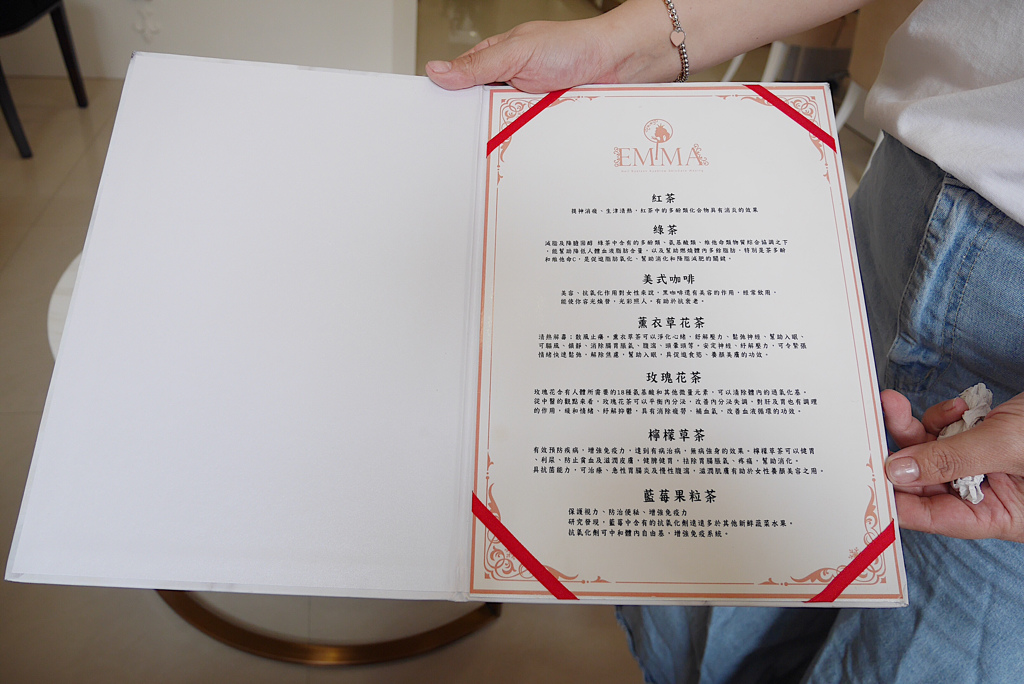 EMMA
紅茶
提神消疲、生津清熱，紅茶中的多酚類化合物具有消炎的效果
綠茶
減脂及降膽固醇 綠茶中含有的多酚類、氨基酸類、維他命類物質綜合協調之下
，能幫助降低人體血液脂肪含量，以及幫助燃燒體內多餘脂肪。特別是茶多酚
和維他命C，是促進脂肪氧化，幫助消化和降脂減肥的關鍵。
美式咖啡
美容、抗氧化作用對女性來說，黑咖啡還有美容的作用，經常飲用，
能使你容光煥發，光彩照人。有助於抗衰老。
薰衣草花茶
清熱解毒；散風止癢。薰衣草茶可以淨化心緒，紓解壓力、鬆弛神經，幫助入眠，
可驅風、鎮靜、消除腸胃脹氣，腹瀉、頭暈頭等。安定神經、紓解壓力，可令緊張
情緒快速鬆弛，解除焦慮，幫助入眠，具促進食慾、養顏美膚的功效。
玫瑰花茶
玫瑰花含有人體所需要的18種氨基酸和其他微量元素，可以清除體內的過氧化基。
從中醫的觀點來看，玫瑰花茶可以平衡內分泌，改善內分泌失調、對肝及胃也有調理
的作用，緩和情緒、紓解抑鬱，具有消除疲勞，補血氣，改善血液循環的功效。
檸檬草茶
有效預防疾病，增強免疫力，達到有病治病，無病強身的效果。檸檬草茶可以健胃
、利尿、防止貧血及滋潤皮膚，健脾健胃，祛除胃腸脹氣、疼痛，幫助消化。
具抗菌能力，可治療、急性胃腸炎及慢性腹瀉，滋潤肌膚有助於女性養顏美容之用。
藍莓果粒茶
保護視力、防治便秘、增強免疫力
研究發現，藍莓中含有的抗氧化劑遠遠多於其他新鮮蔬菜水果。
抗氧化劑可中和體內自由基，增強免疫系統。